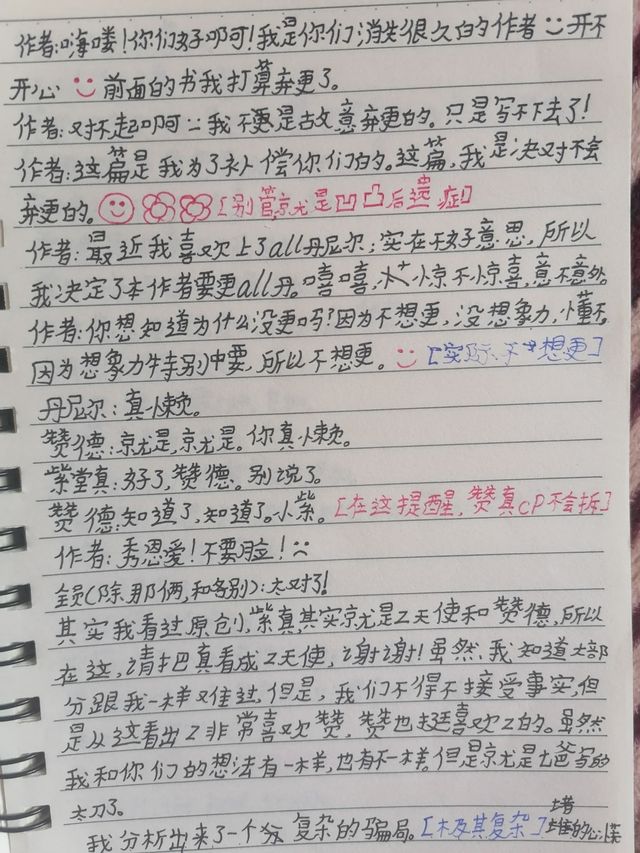 作者:嗨喽!你们好啊可!我是你们消失很久的作者 开不
开心 前面的书我打算弃更了。
作者:对不起啊 我不是故意弃更的。只是写不下去了!
作者:这篇是我为了补偿你们的。这篇,我是决对不会
弃更的。[别管就是凹凸后遗症]
作者:最近我喜欢上了all丹尼尔;实在不好意思,所以
我决定了本作者要更all丹。嘻嘻,惊不惊喜,意不意外
作者:你想知道为什么没更吗?因为不想更,没想象力,懂不。
因为想象力特别中要,所以不想更。[实际,不想更]
丹尼尔:真懒。
赞德:就是,就是。你真懒。
紫堂真:好了,赞德。别说了。
赞德:知道了,知道了。小紫。[在这提醒,赞真cP不会拆]
作者:秀恩爱!不要脸!
全员(除那俩,和各别):太对了!
其实我看过原创,紫真其实就是Z天使和赞德,所以
在这,请把真看成Z天使,谢谢!虽然,我知道大部
分跟我一样难过,但是,我们不得不接受事实,但
是从这看出Z非常喜欢赞,赞也挺喜欢Z的。虽然
我和你们的想法有一样,也有不一样。但是就是七爸写的
太刀了。
我分析出来了一个 复杂的骗局。[极其复杂]堵堵的心慌